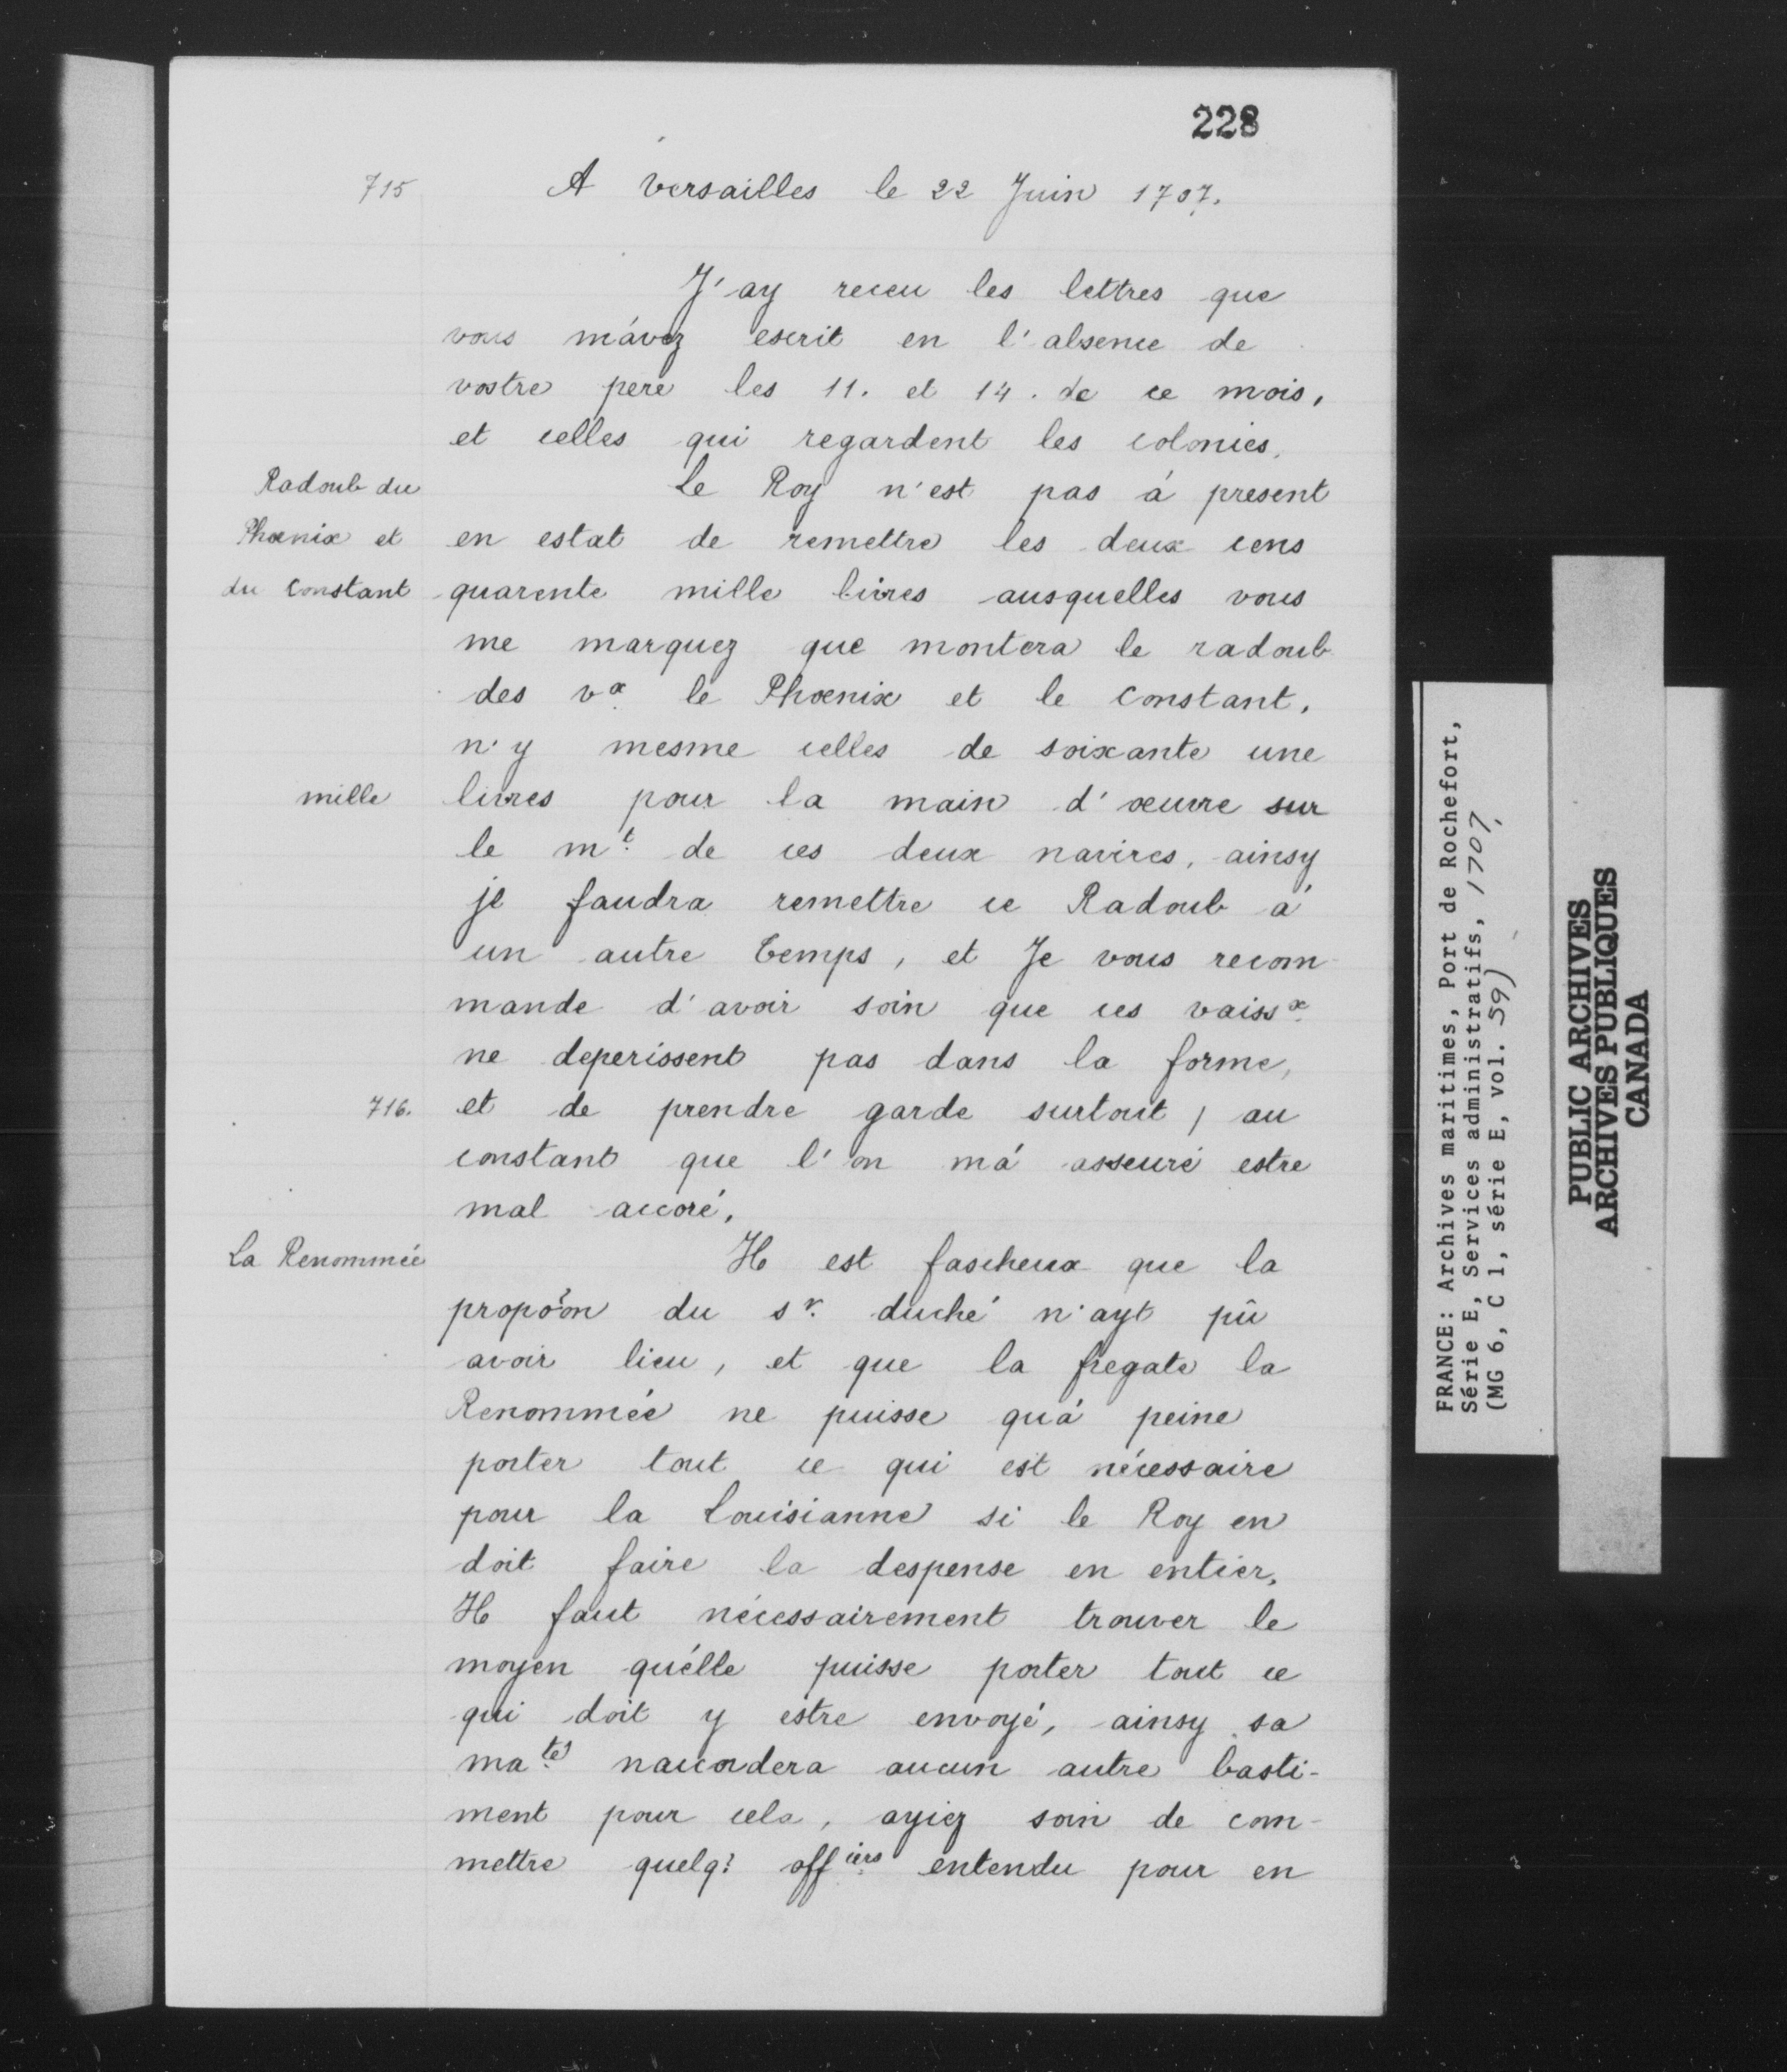 228
715
A Versailles le 22 Juin 1707.
J'ay receu les lettres que
vous m'ávez escrit en l'absence de
vostre pere les 11. et 14. de ce mois,
et celles qui regardent les colonies.
Radoub du
Phœnix et
du Constant
Le Roy n'est pas á present
en estat de remettre les deux cens
quarente mille livres ausquelles vous
me marquez que montera le radoub
des vx le Phœnix et le Constant,
n'y mesme celles de soixante une
mille
livres pour la main d'œuvre sur
le mt. de ces deux navires, ainsy
jl faudra remettre ce Radoub á
un autre temps, et Je vous recom-
mande d'avoir soin que ces vaissx
ne deperissent pas dans la forme,
716.
et de prendre garde surtout / au
constant que l'on má asseuré estre
mal accoré.
La Renommée
Il est fascheux que la
propoõn du sr. duché n'ayt pû
avoir lieu, et que la fregate la
Renommée ne puisse qu'á peine
porter tout ce qui est nécessaire
pour la Louisianne si le Roy en
doit faire la despense en entier.
Il faut nécessairement trouver le
moyen qu'élle puisse porter tout ce
qui doit y estre envoyé, ainsy sa
maté n'accordera aucun autre basti-
ment pour cela, ayiez soin de com-
mettre quelq: officiers entendu pour en
FRANCE: Archives maritimes, Port de Rochefort,
Série E, Services administratifs, 1707,
(MG 6, C 1, série E, vol. 59)
PUBLIC ARCHIVES
ARCHIVES PUBLIQUES
CANADA